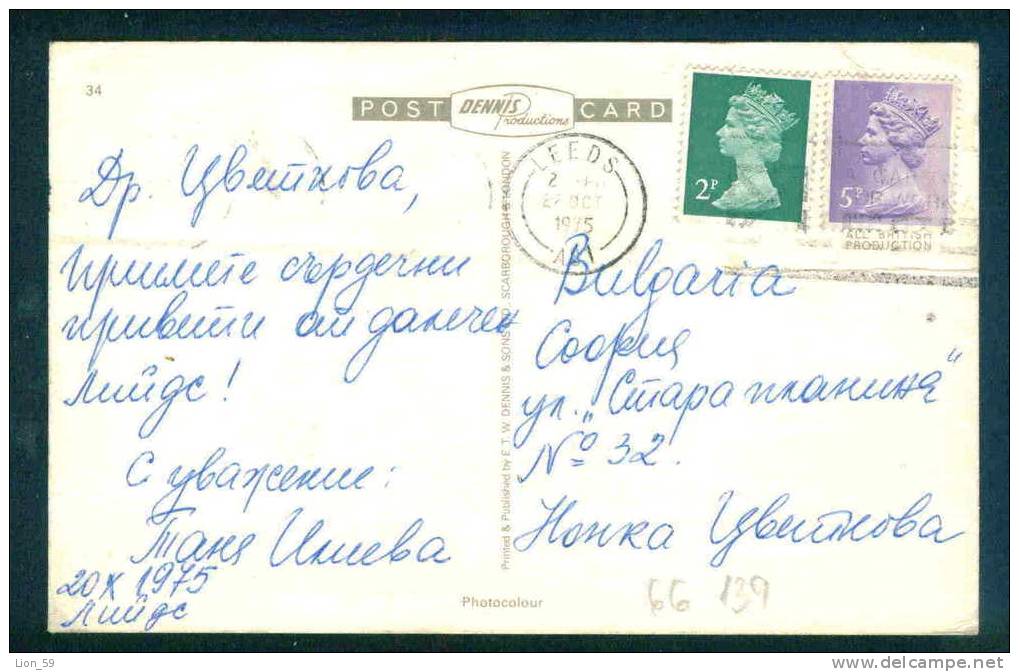 34
POST DENNIS Productions CARD
2P
5P
LEEDS
OCT
1975
ALL BRITISH
PRODUCTION
Др. Цветкова,
Приемете сърдечни
привети от далечен
Лийдс!
С уважение:
Таня Илиева
20 X 1975
Лийдс
Printed & Published by E. T. W. DENNIS & SONS LTD., SCARBOROUGH & LONDON
Bulgaria
София
ул. „Стара планина“
№ 32.
Нонка Цветкова
Photocolour
66 139
Lion_59
http://www.delcampe.net